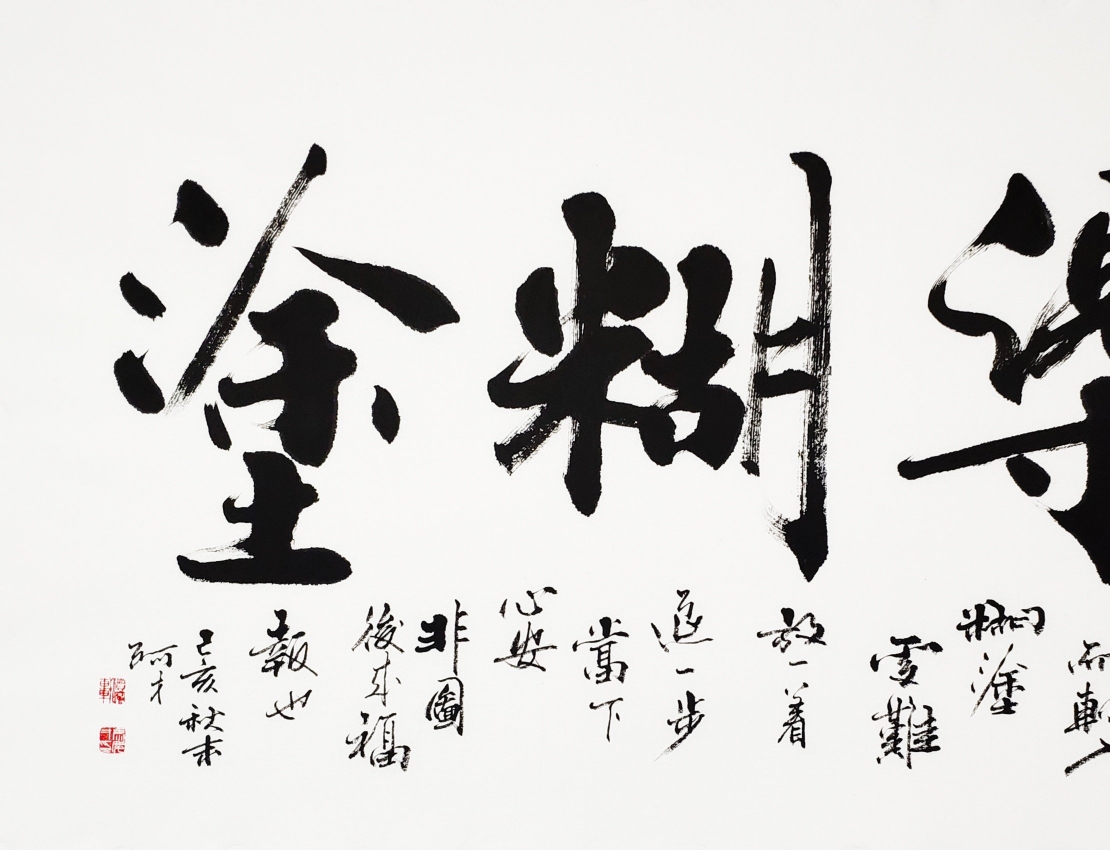 得糊塗
而轉入
糊塗
更難
放一着
退一步
當下
心安
非圖
後來福
報也
己亥秋末
阿才